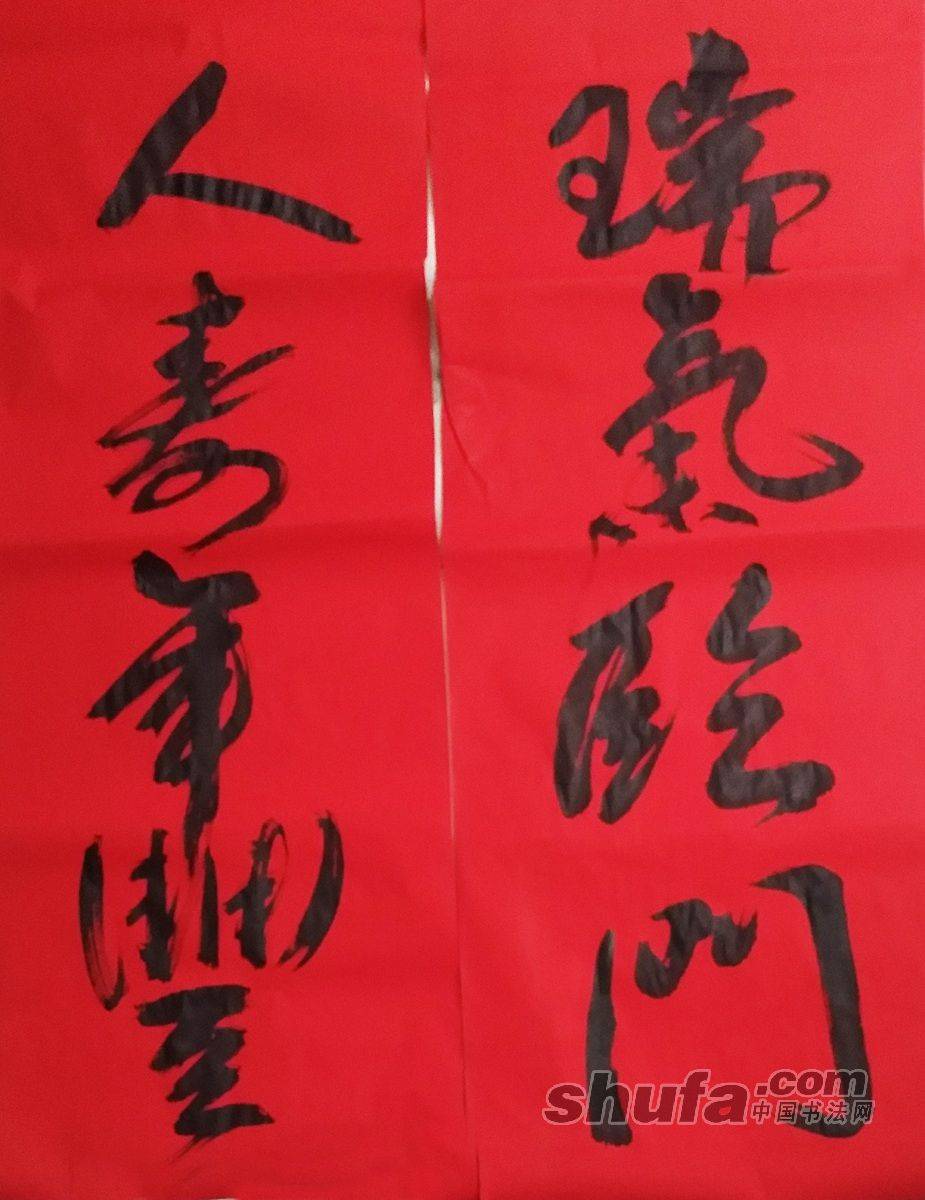 瑞氣臨門
人壽年豐
shufa.com
中国书法网